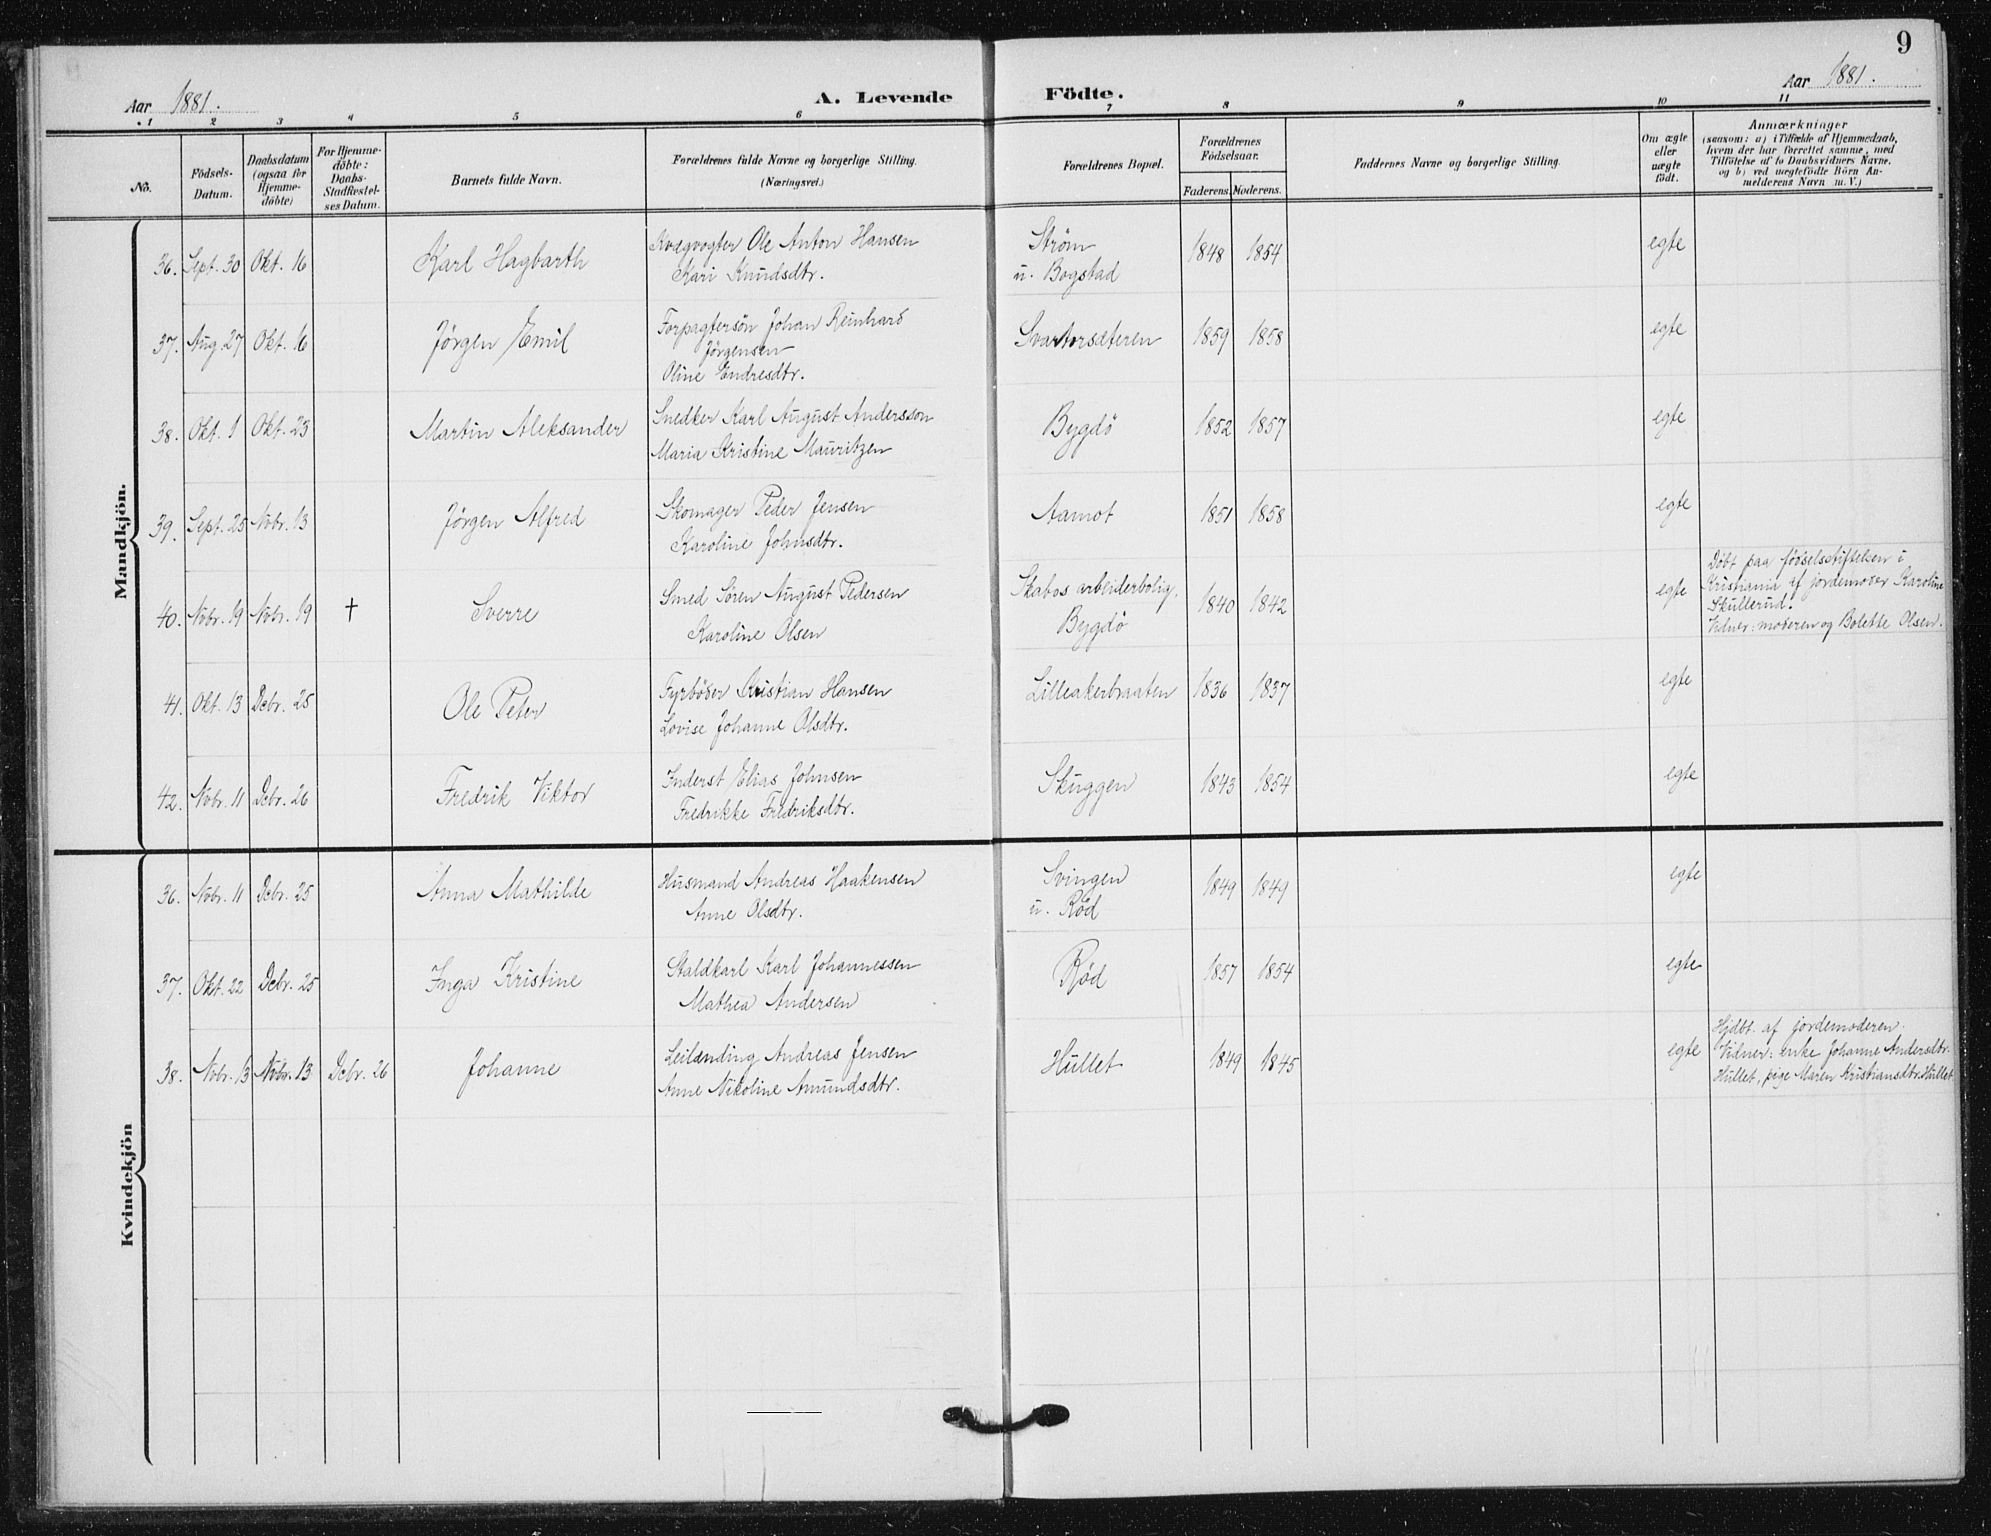 9
Aar 1881.
A. Levende Födte.
Aar 1881.
1 2 3 4 5 6 7 8 9 10 11
No.
Födsels-
Datum.
Daabsdatum
(ogsaa for
Hjemme-
döbte)
For Hjemme-
döbte:
Daabs-
Stadfæstel-
ses Datum.
Barnets fulde Navn.
Forældrenes fulde Navne og borgerlige Stilling.
(Næringsvei.)
Forældrenes Bopæl.
Forældrenes
Födselsaar.
Faderens. Moderens.
Faddernes Navne og borgerlige Stilling.
Om ægte
eller
uægte
födt.
Anmærkninger
(saasom: a) i Tilfælde af Hjemmedaab,
hvem der har forrettet samme, med
Tilföielse af to Daabsvidners Navne.
og b) ved uægtefödte Börn An-
melderens Navn m. V.)
Mandkjön.
36. Sept. 30 Okt. 16 Karl Hagbarth Kvægvogter Ole Anton Hansen Strøm 1848 1854 egte
Kari Knudsdtr. u. Bogstad
37. Aug. 27 Okt. 16 Jørgen Emil Forpagtersøn Johan Reinhard Svartorsæteren 1859 1858 egte
Jørgensen
Oline Endresdtr.
38. Okt. 1 Okt. 23 Martin Aleksander Snedker Karl August Andersson Bygdö 1852 1857 egte
Maria Kristine Mauritzen
39. Sept. 25 Novbr. 13 Jørgen Alfred Skomager Peder Jensen Aamot 1851 1858 egte
Karoline Johnsdtr.
40. Novbr. 19 Novbr. 19 † Sverre Smed Sören August Pedersen Skabos arbeiderbolig, 1840 1842 egte
Karoline Olsen Bygdö
Döbt paa fødselsstiftelsen i
Kristiania af jordemoder Karoline
Skullerud.
Vidner: moderen og Bolette Olsen.
41. Okt. 13 Dcbr. 25 Ole Peter Fyrböder Kristian Hansen Lilleakerbraaten 1836 1837 egte
Lovise Johanne Olsdtr.
42. Nvbr. 11 Dcbr. 26 Fredrik Viktor Inderst Elias Johnsen Skuggen 1843 1854 egte
Fredrikke Fredriksdtr.
Kvindekjön
36. Nvbr. 11 Dcbr. 25 Anna Mathilde Husmand Andreas Haakensen Svingen 1849 1849 egte
Anne Olsdtr. u. Rød
37. Okt. 22 Dcbr. 25 Inga Kristine Staldkarl Karl Johannessen Rød 1857 1854 egte
Mathea Andersen
38. Nvbr. 13 Nvbr. 13 Dcbr. 26 Johanne Leilænding Andreas Jensen Hullet 1849 1845 egte
Anne Nikoline Amundsdtr.
Hjdbt. af jordemoderen.
Vidner: enke Johanne Andersdtr.
Hullet, pige Maren Kristiansdtr. Hullet